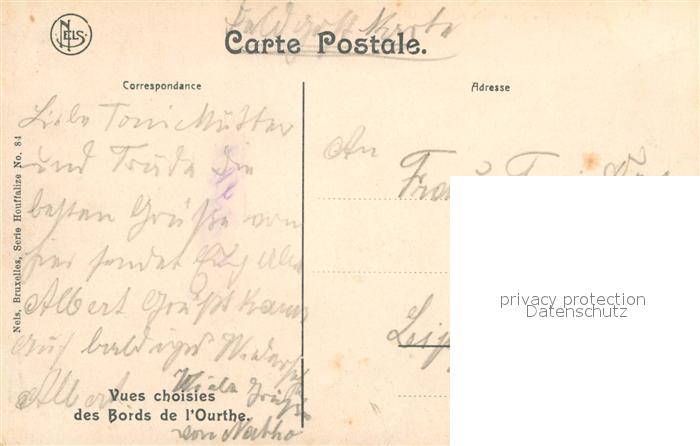 Feldpostkarte
NELS
Carte Postale.
Correspondance
Adresse
Liebe Toni Mutter
und Trude die
besten Grüße von
hier sendet Euch
Albert
Auf baldiges Wiederseh
Albert
Viele Grüße
von
An
Frau
Leip
Vues choisies
des Bords de l'Ourthe.
Nels, Bruxelles, Serie Houffalize No. 84
privacy protection
Datenschutz